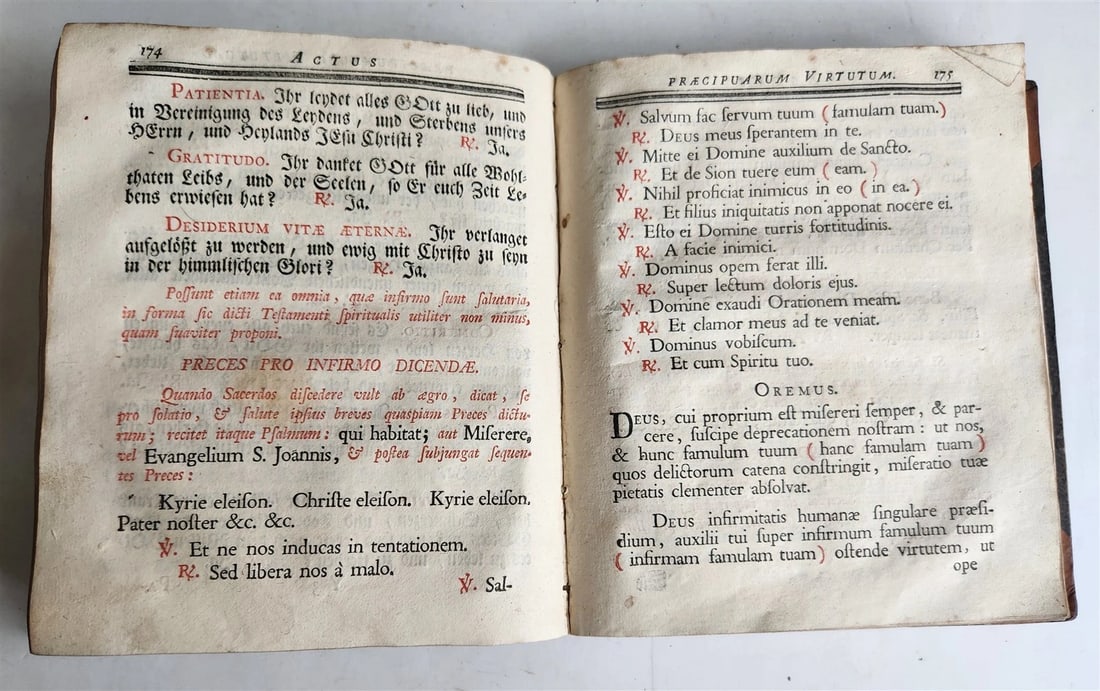 174
ACTUS
PATIENTIA. Ihr leydet alles GOtt zu lieb, und
in Vereinigung des Leydens, und Sterbens unsers
HErrn, und Heylands JEsu Christi? ℟. Ja.
GRATITUDO. Ihr danket GOtt für alle Wohl-
thaten Leibs, und der Seelen, so Er euch Zeit Le-
bens erwiesen hat? ℟. Ja.
DESIDERIUM VITÆ ÆTERNÆ. Ihr verlanget
aufgelößt zu werden, und ewig mit Christo zu seyn
in der himmlischen Glori? ℟. Ja.
Poſſunt etiam ea omnia, quæ infirmo ſunt ſalutaria,
in forma ſic dicti Teſtamenti ſpiritualis utiliter non minus,
quam ſuaviter proponi.
PRECES PRO INFIRMO DICENDÆ.
Quando Sacerdos diſcedere vult ab ægro, dicat, ſe
pro ſolatio, & ſalute ipſius breves quaspiam Preces dictu-
rum; recitet itaque Pſalmum: qui habitat; aut Miſerere,
vel Evangelium S. Joannis, & poſtea ſubjungat ſequen-
tes Preces:
Kyrie eleiſon. Chriſte eleiſon. Kyrie eleiſon.
Pater noſter &c. &c.
℣. Et ne nos inducas in tentationem.
℟. Sed libera nos à malo.
℣. Sal-
PRÆCIPUARUM VIRTUTUM.
175
℣. Salvum fac ſervum tuum (famulam tuam.)
℟. DEUS meus ſperantem in te.
℣. Mitte ei Domine auxilium de Sancto.
℟. Et de Sion tuere eum (eam.)
℣. Nihil proficiat inimicus in eo (in ea.)
℟. Et filius iniquitatis non apponat nocere ei.
℣. Eſto ei Domine turris fortitudinis.
℟. A facie inimici.
℣. Dominus opem ferat illi.
℟. Super lectum doloris ejus.
℣. Domine exaudi Orationem meam.
℟. Et clamor meus ad te veniat.
℣. Dominus vobiſcum.
℟. Et cum Spiritu tuo.
OREMUS.
DEUS, cui proprium eſt miſereri ſemper, & par-
cere, ſuſcipe deprecationem noſtram: ut nos,
& hunc famulum tuum (hanc famulam tuam)
quos delictorum catena conſtringit, miſeratio tuæ
pietatis clementer abſolvat.
DEUS infirmitatis humanæ ſingulare præſi-
dium, auxilii tui ſuper infirmum famulum tuum
(infirmam famulam tuam) oſtende virtutem, ut
ope